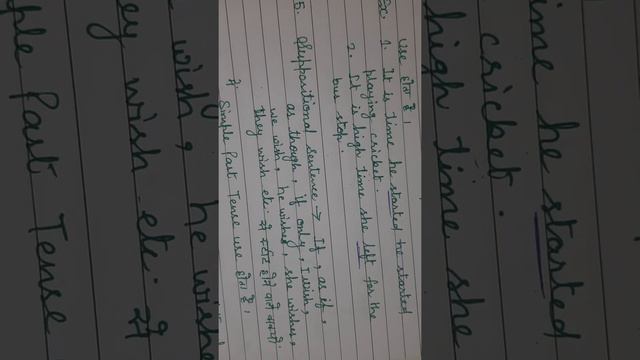 Use होता है।
Ex. 1. It is time he started he started
playing cricket.
2. It is high time she left for the
bus stop.
5. Suppositional sentence → If, as if,
as though, if only, I wish,
we wish, he wishes, she wishes,
they wish etc. से स्टार्ट होने वाले वाक्यों
में Simple Past Tense use होता है।